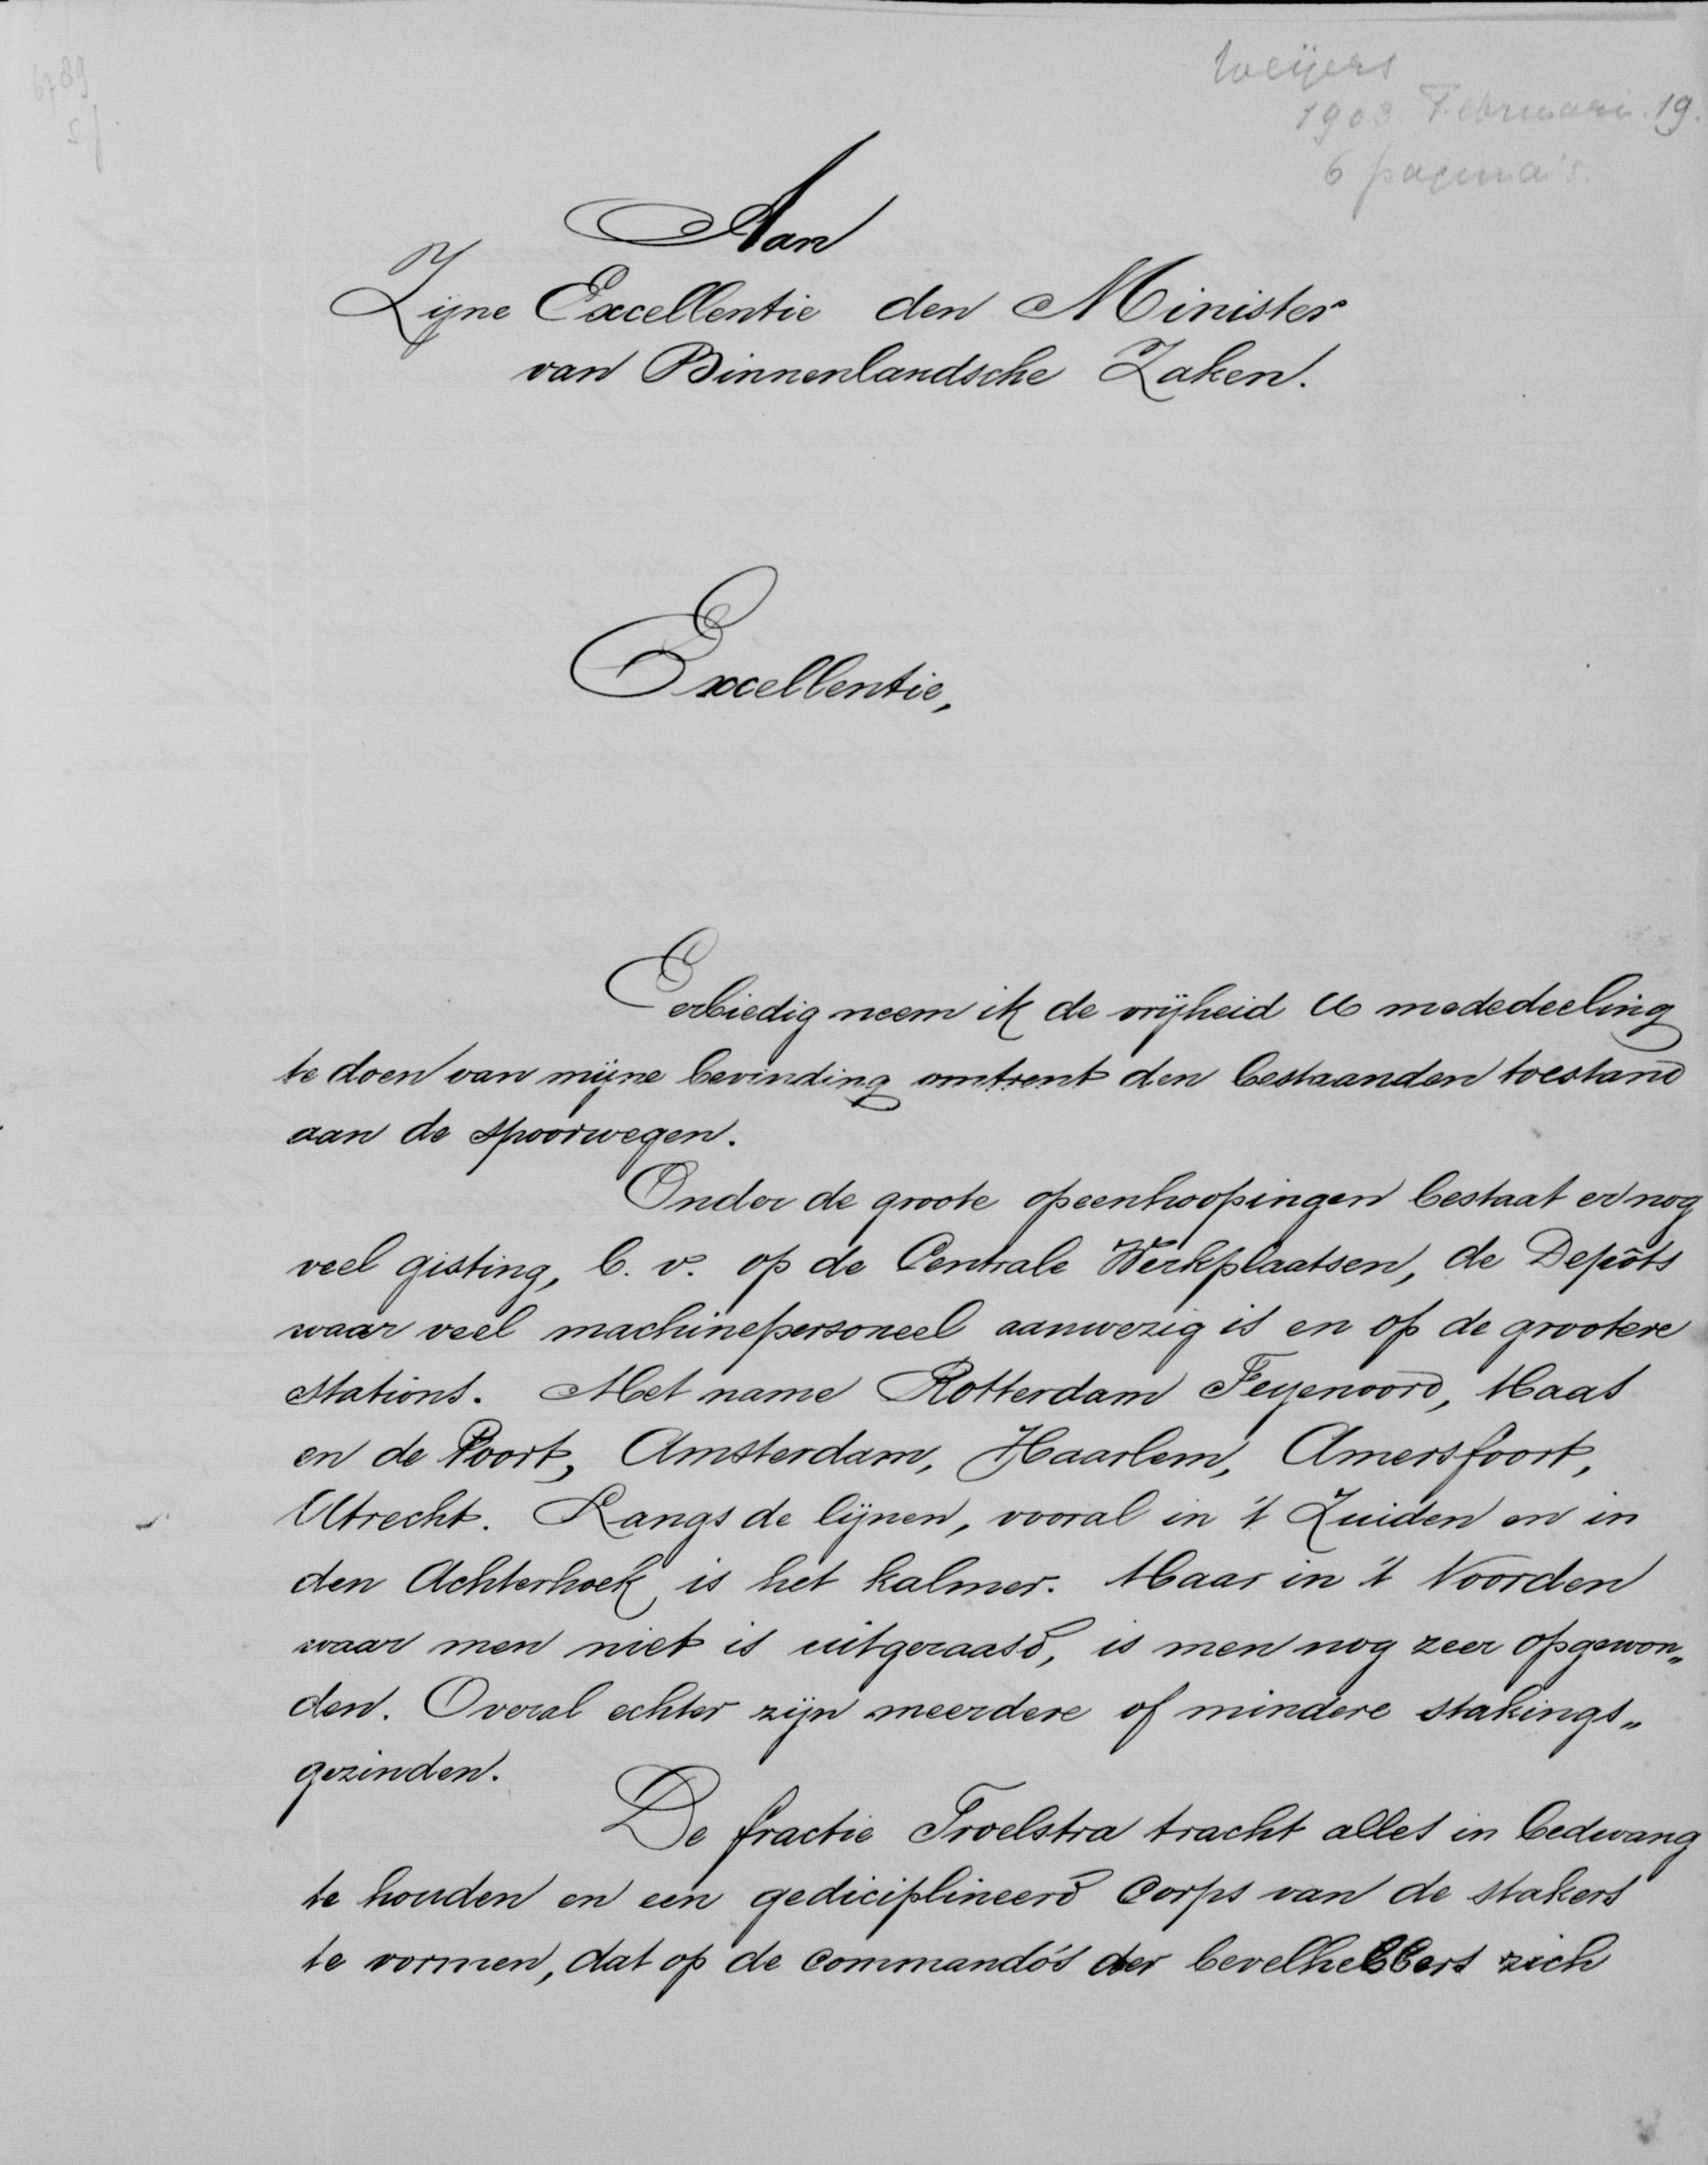 Weijers
1903 Februari 19.
6 pagina's.
6789
Aan
Zijne Excellentie den Minister
van Binnenlandsche Zaken.
Excellentie,
Eerbiedig neem ik de vrijheid U mededeeling
te doen van mijne bevinding omtrent den bestaanden toestand
aan de spoorwegen.
Onder de groote opeenhoopingen bestaat er nog
veel gisting, b. v. op de Centrale Werkplaatsen, de Depôts
waar veel machinepersoneel aanwezig is en op de grootere
stations. Met name Rotterdam Feyenoord, Maas
en de Poort, Amsterdam, Haarlem, Amersfoort,
Utrecht. Langs de lijnen, vooral in 't Zuiden en in
den Achterhoek is het kalmer. Maar in 't Noorden
waar men niet is uitgeraasd, is men nog zeer opgewon„
den. Overal echter zijn meerdere of mindere stakings„
gezinden.
De fractie Troelstra tracht alles in bedwang
te houden en een gediciplineerd corps van de stakers
te vormen, dat op de commando's der bevelhebbers zich